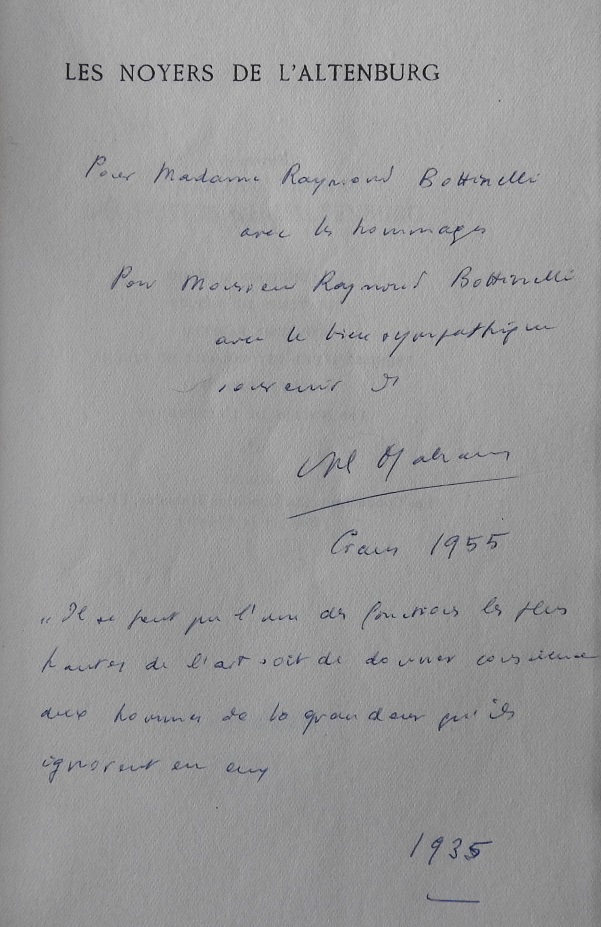 LES NOYERS DE L'ALTENBURG
Pour Madame Raymond Bottinelli
avec les hommages
Pour Monsieur Raymond Bottinelli
avec le bien sympathique
souvenir de
André Malraux
Crans 1955
"Il se peut que l'une des fonctions les plus
hautes de l'art soit de donner conscience
aux hommes de la grandeur qu'ils
ignorent en eux
1935